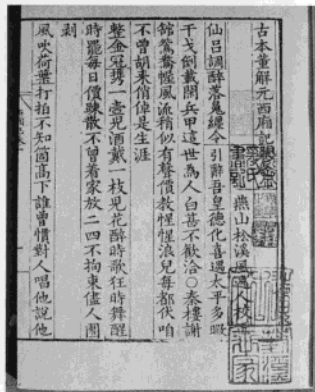 古本董解元西廂記
燕山松溪風逸人校
仙呂調醉落魄纏令引辭吾皇德化喜遇太平多暇
干戈倒載閑兵甲這世為人白甚不歡洽○秦樓謝
舘鴛鴦幄風流稍似有聲價教惺惺浪兒每都伏咱
不曾胡來俏倬是生涯
整金冠携一壺兒酒戴一枝兒花醉時歌狂時舞醒
時罷每日價疎散不曾着家放二四不拘束儘人團
剥
風吹荷葉打拍不知箇高下誰曾慣對人唱他說他